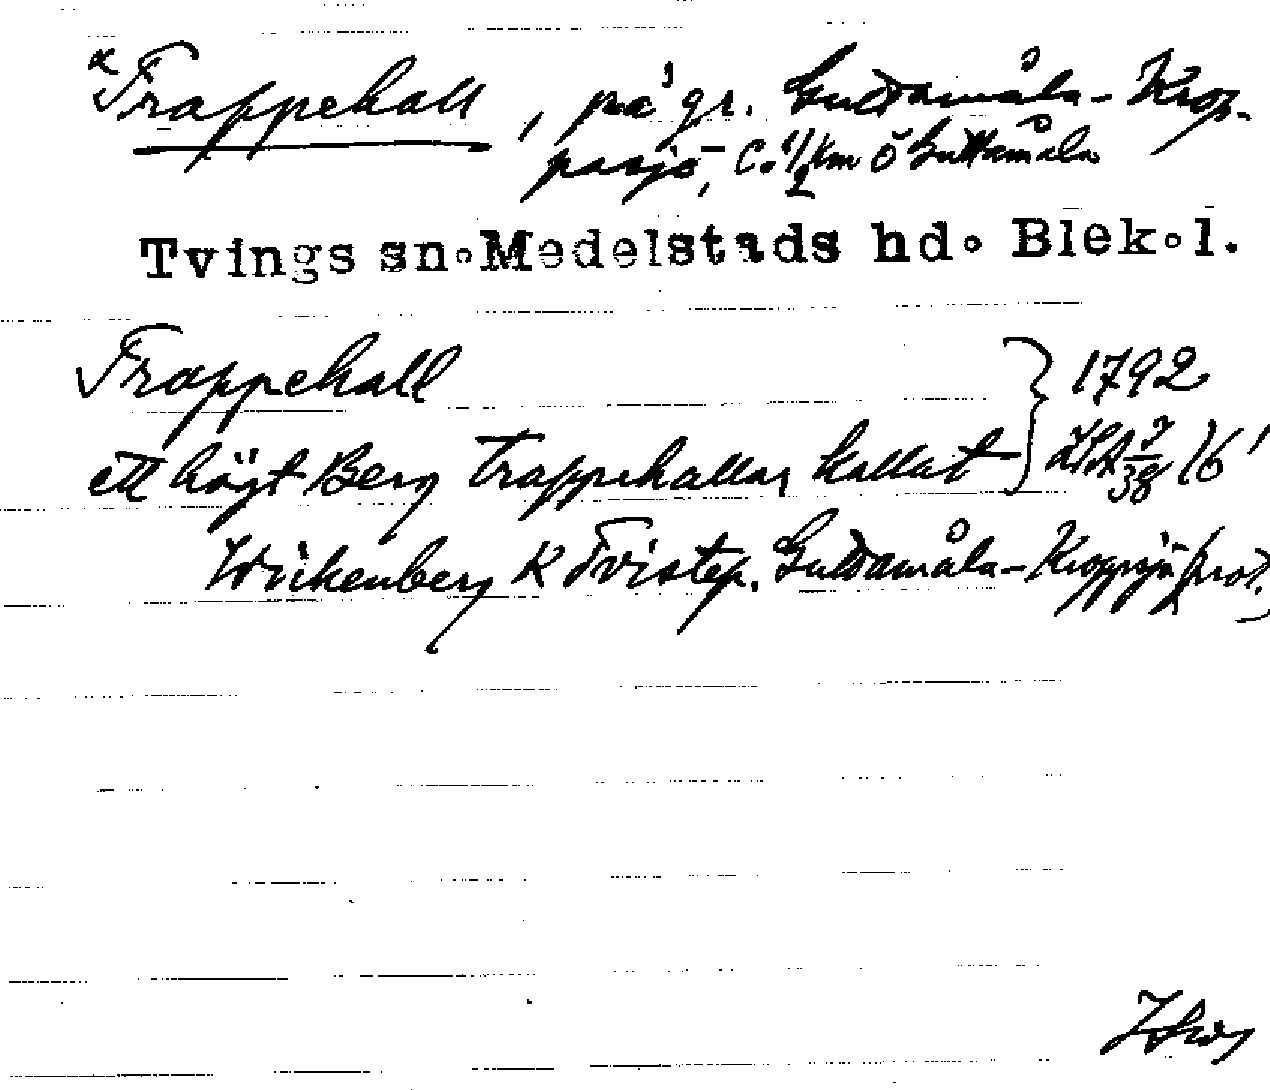 Trappehall, på gr. Guttamåla-Krop-
pasjö, C. 1/2 km Ö Guttamåla
Tvings sn. Medelstads hd. Blek. l.
Trappehall } 1792
ett högt Berg Trappehallar kallat
Wickenberg K Tvistep. Guttamåla-Kroppsjö (prot.)